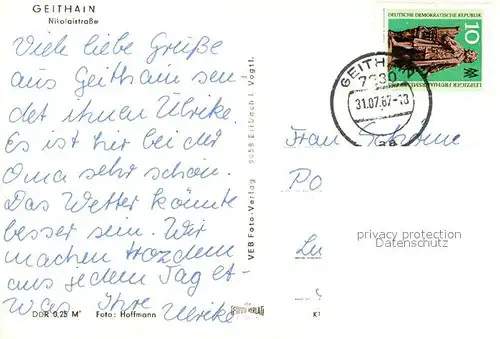 GEITHAIN
Nikolaistraße
Viele liebe Grüße
aus Geithain sen-
det ihnen Ulrike.
Es ist hir bei der
Oma sehr schön.
Das Wetter könnte
besser sein. Wir
machen trozdem
aus jedem Tag et-
was Ihre
Ulrike
DDR 0,25 M
Foto: Hoffmann
VEB Foto-Verlag 9658 Erlbach i. Vogtl.
FOTO VERLAG
K
DEUTSCHE DEMOKRATISCHE REPUBLIK
10
LEIPZIGER
GEITHAIN
7230
31.07.87-13
Frau
Po
Lu
privacy protection
Datenschutz